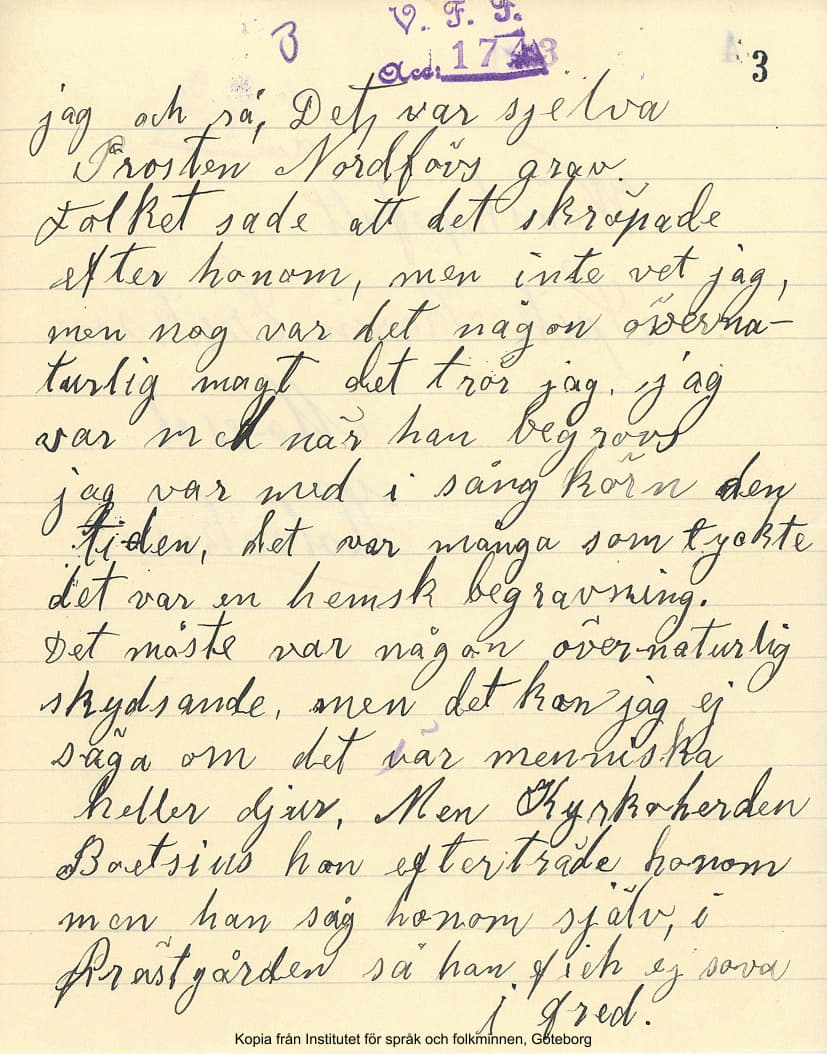 3
V. F. F.
Acc: 1743
3
jag och så, Det, var själva
Prosten Nordfövs grav.
Folket sade att det skräpade
efter honom, men inte vet jag,
men nog var det någon överna-
turlig magt det tror jag, jag
var med när han begrovs
jag var med i sång körn den
tiden, det var många som tyckte
det var en hemsk begravning.
Det måste var någon övernaturlig
skydsande, men det kan jag ej
säga om det var menniska
heller djur, Men Kyrkoherden
Boetsius han efterträde honom
men han såg honom själv, i
Prästgården så han fick ej sova
i fred.
Kopia från Institutet för språk och folkminnen, Göteborg